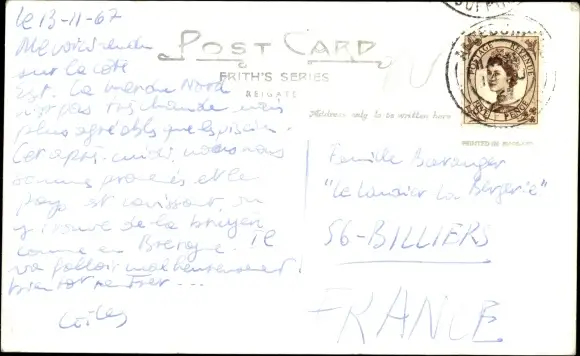 le 13-11-67
Me voici rendu
sur la côte
Est. La mer du Nord
n'est pas très chaude mais
plus agréable que la piscine.
Cet après-midi, nous nous
sommes promenés et le
pays est ravissant, on
y trouve de la bruyère
comme en Bretagne. Il
va falloir malheureusement
bientôt rentrer ...
POST CARD
FRITH'S SERIES
REIGATE
Address only to be written here
POSTAGE REVENUE
PRINTED IN ENGLAND
Famille Baranger
"Le Laurier La Bergerie"
56-BILLIERS
FRANCE